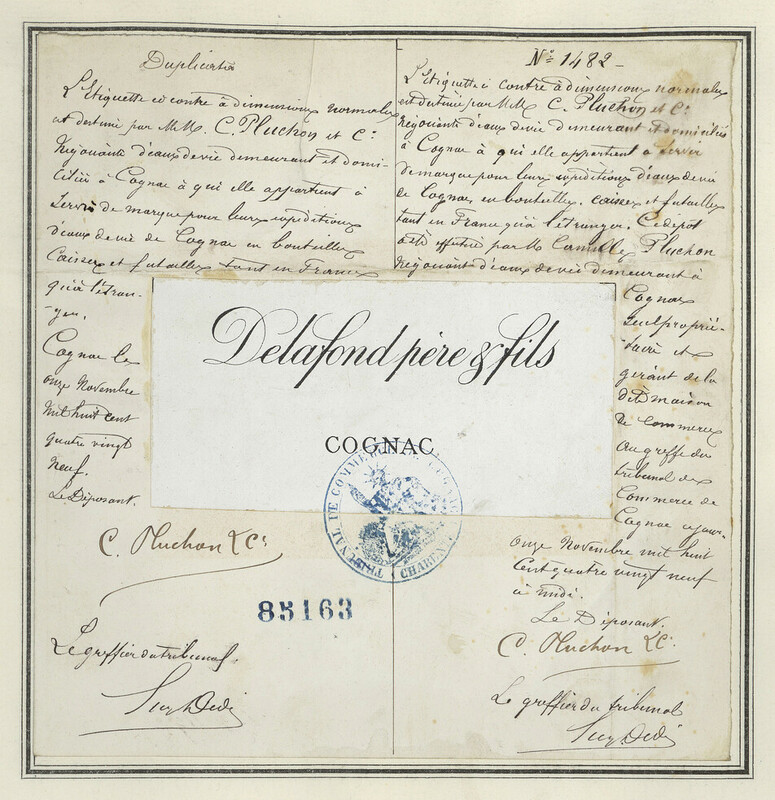 Duplicata
L'Etiquette ci contre à dimensions normales
est destinée par M.M. C. Pluchon et Cie
Négociants d'eaux de vie demeurant et domi-
ciliés à Cognac à qui elle appartient à
servir de marque pour leurs expéditions
d'eaux de vie de Cognac en bouteilles
Caisses et futailles tant en France
qu'à l'étran-
ger.
Cognac le
onze Novembre
mil huit cent
quatre vingt
neuf.
Le Déposant.
C. Pluchon & Cie
Le greffier du tribunal
No 1482 -
L'Etiquette ci contre à dimensions normales
est destinée par M.M. C. Pluchon et Cie
Négociants d'eaux de vie demeurant et domiciliés
à Cognac à qui elle appartient à servir
de marque pour leurs expéditions d'eaux de vie
de Cognac en bouteilles, caisses et futailles
tant en France qu'à l'étranger. Ce dépôt
a été effectué par M. Camille Pluchon
Négociant d'eaux de vie demeurant à
Cognac
seul proprié-
taire et
gérant de la
dite maison
de commerce
au greffe du
tribunal de
Commerce de
Cognac ce jour-
onze Novembre mil huit
cent quatre vingt neuf
à midi.
Le Déposant.
C. Pluchon & Cie
Le greffier du tribunal
Delafond père & fils
COGNAC
TRIBUNAL DE COMMERCE DE COGNAC
CHARENTE
85163